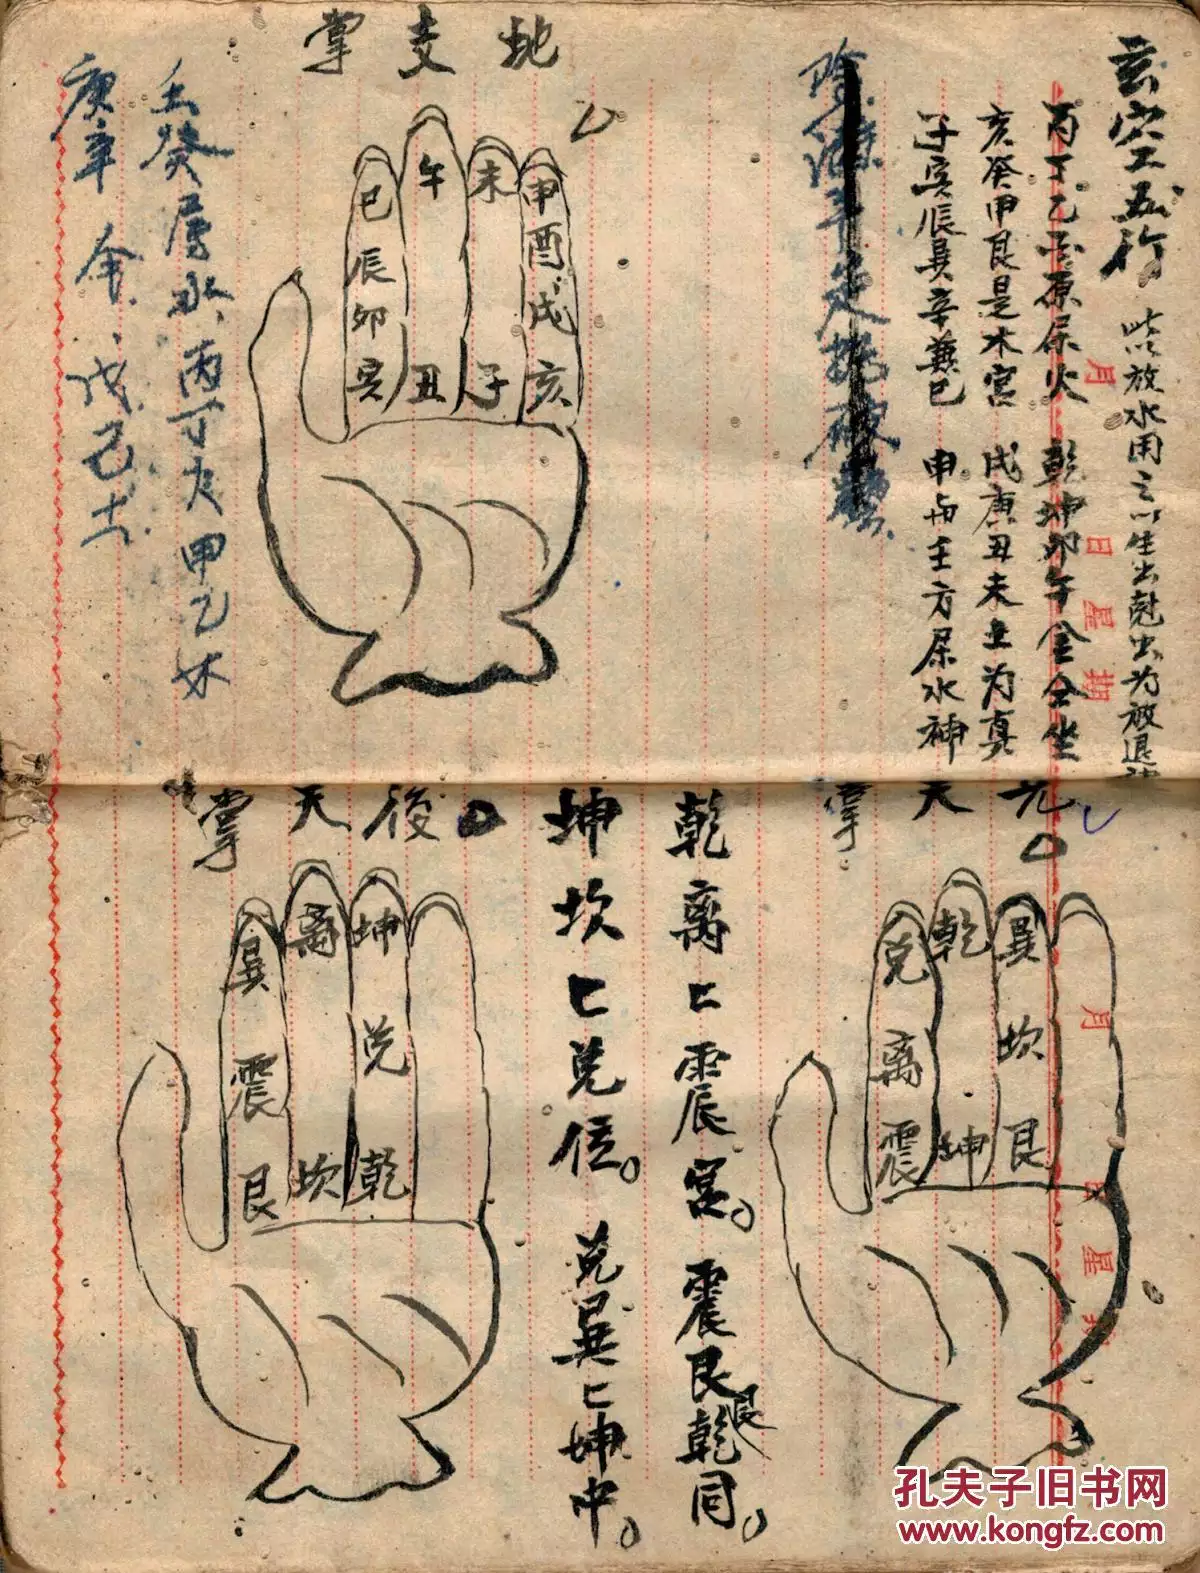 玄空五行
此放水用之以生出剋出为放退神
丙丁乙酉原属火 乾坤卯午金仝坐
亥癸甲艮是木宫 戌庚丑未土为真
子寅辰巽辛兼巳 申与壬方属水神
地支掌
巳 午 未 申
辰 酉
卯 戌
寅 丑 子 亥
壬癸属水 丙丁火 甲乙木
庚辛金 戊己土
先天掌
兑 乾 巽
离 坎
震 坤 艮
乾离匕震宫。震艮艮乾同。
坤坎匕兑位。兑巽匕坤中。
後天掌
巽 离 坤
震 兑
艮 坎 乾
月 日 星期
月 日 星
孔夫子旧书网
www.kongfz.com